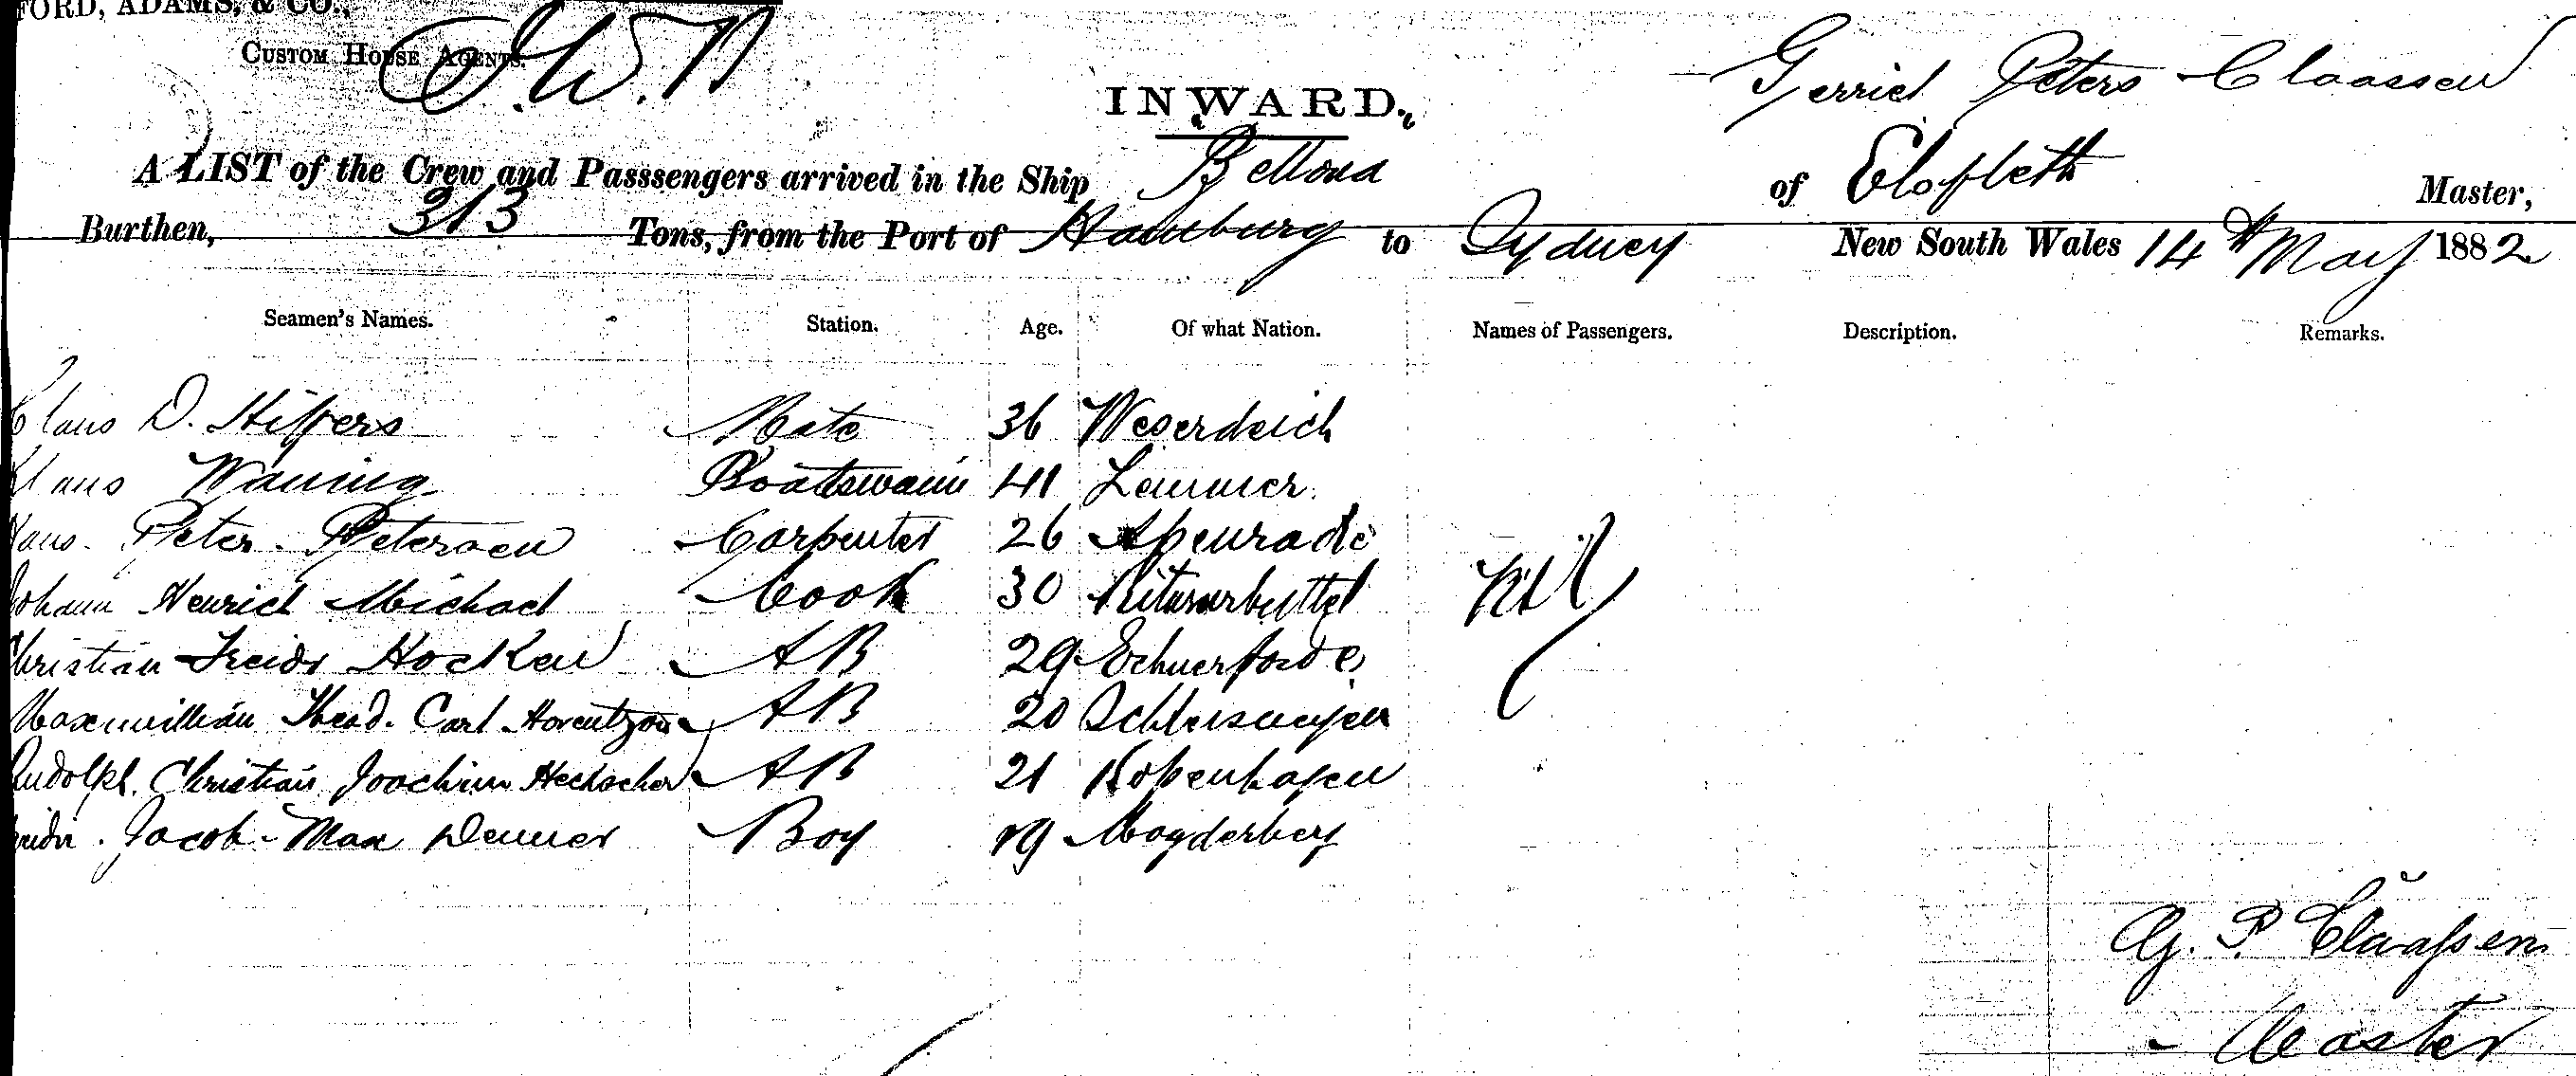 FORD, ADAMS, & CO.,
CUSTOM HOUSE AGENTS.
INWARD.
Gerriet Peters Claassen
A LIST of the Crew and Passsengers arrived in the Ship Bellona of Elsfleth Master,
Burthen, 313 Tons, from the Port of Hamburg to Sydney New South Wales 14th May 1882
Seamen's Names. Station. Age. Of what Nation. Names of Passengers. Description. Remarks.
Claus D. Mate 36 Weserdeich
Klaus Waning Boatswain 41 Lemmer.
Hans. Peter. Petersen Carpenter 26 Apenrade
Johann Henrich Michael Cook 30 Nil
Christian Freidr Hocken AB 29
Maxemillian Thead. Carl AB 20
Rudolph. Christian Joachim AB 21 Kopenhagen
Freidr. Jacob Max Denner Boy 19 Magderberg
G. P. Claassen
Master